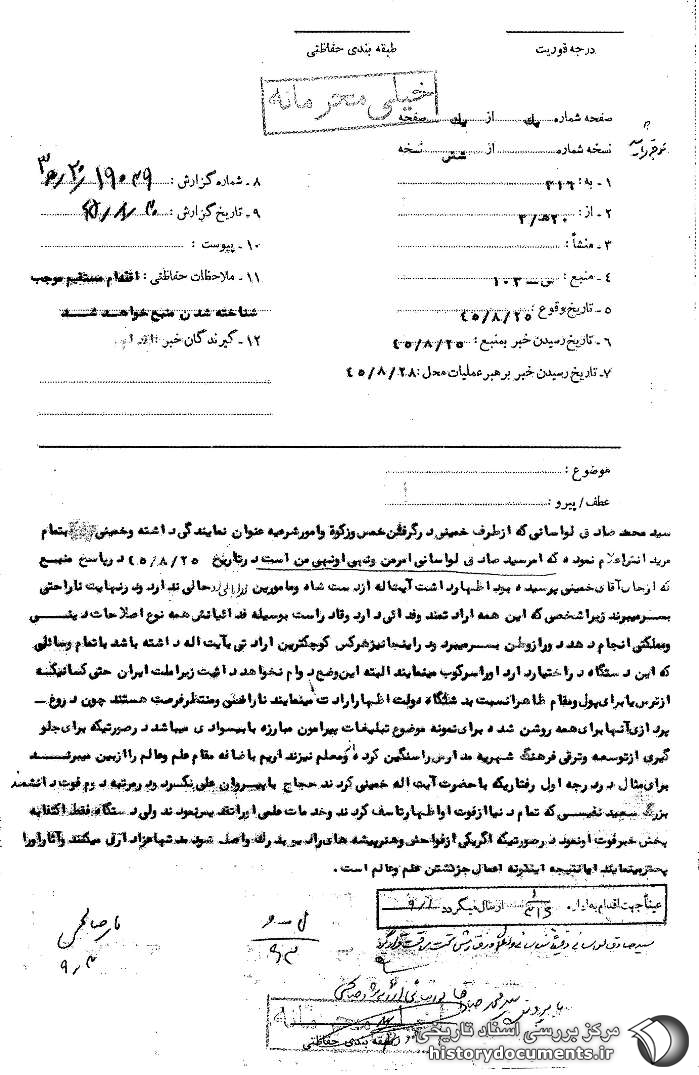 درجه فوریت
طبقه بندی حفاظتی
خیلی محرمانه
صفحه شماره یك از یك صفحه
نسخه شماره از شش نسخه
۱ - به : ۳۱۶
۲ - از : ۲۰هـ/۲
۳ - منشأ :
۴ - منبع : س - ۱۰۳
۵ - تاریخ وقوع : ۴۵/۸/۲۵
۶ - تاریخ رسیدن خبر بمنبع : ۴۵/۸/۲۵
۷ - تاریخ رسیدن خبر برهبر عملیات محل : ۴۵/۸/۲۸
۸ - شماره گزارش :
۹ - تاریخ گزارش : ۴۵/۸/۳۰
۱۰ - پیوست :
۱۱ - ملاحظات حفاظتی : اقدام مستقیم موجب
شناخته شدن منبع خواهد شد
۱۲ - گیرندگان خبر :
موضوع :
عطف / پیرو :
سید محمد صادق لواسانی که از طرف خمینی درگرفتن خمس وزکوة وامور شرعیه عنوان نمایندگی داشته وخمینی بتمام
مریدانش اعلام نموده که امر سید صادق لواسانی امر من ونهی او نهی من است درتاریخ ۴۵/۸/۲۵ درپاسخ منبع
که ازحال آقای خمینی پرسیده بود اظهار داشت آیت اله ازدست شاه ومامورین حالی ندارد ودر نهایت ناراحتی
بسر میبرند زیرا شخصی که این همه ارادتمند وفدائی دارد وقادر است بوسیله فدائیانش همه نوع اصلاحات دینی
ومملکتی انجام دهد دور ازوطن بسر میبرد ودر اینجا نیز هرکس کوچکترین ارادتی بآیت اله داشته باشد باتمام وسائلی
که این دستگاه در اختیار دارد اورا سرکوب مینمایند البته این وضع دوام نخواهد داشت زیرا ملت ایران حتی کسانیکه
ازترس یا برای پول ومقام ظاهرا نسبت بدستگاه دولت اظهار ارادت مینمایند ناراضی ومنتظر فرصت هستند چون دروغ -
پردازی آنها برای همه روشن شده برای نمونه موضوع تبلیغات پیرامون مبارزه با بیسوادی میباشد درصورتیکه برای جلو
گیری ازتوسعه وترقی فرهنگ شهریه مدارس را سنگین کرده ومعلم نیز ندارم باضافه مقام علم وعالم را ازبین میبرند
برای مثال درد رجه اول رفتاریکه باحضرت آیت اله خمینی کردند حجاج با پیروان علی نکرد ودر مرتبه دوم فوت دانشمند
بزرگ سعید نفیسی که تمام دنیا ازفوت او اظهار تاسف کردند وخدمات علمی اورا تقدیس نمودند ولی دستگاه فقط اکتفا به
پخش خبر فوت او نمود درصورتیکه اگر یکی ازفواحش وهنرپیشه های رادیو بدرك واصل شود مدتها عزاداری میکنند وآثار اورا
پخش مینمایند اما نتیجه اینگونه اعمال جز کشتن علم وعالم است .
عیناً جهت اقدام به اداره ۳۱۶ ارسال میگردد ۹/۱
طبقه بندی حفاظتی
مرکز بررسی اسناد تاریخی
historydocuments.ir